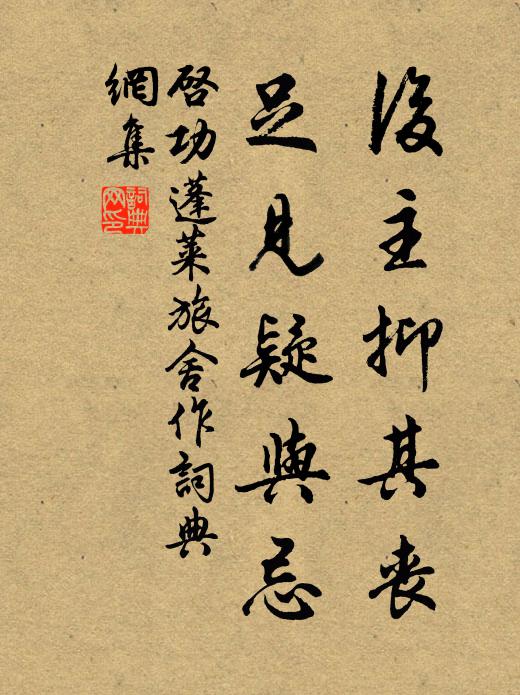 後主抑其喪
足見疑與忌
啓功蓬萊旅舍作詞典
網集
詞典
网印